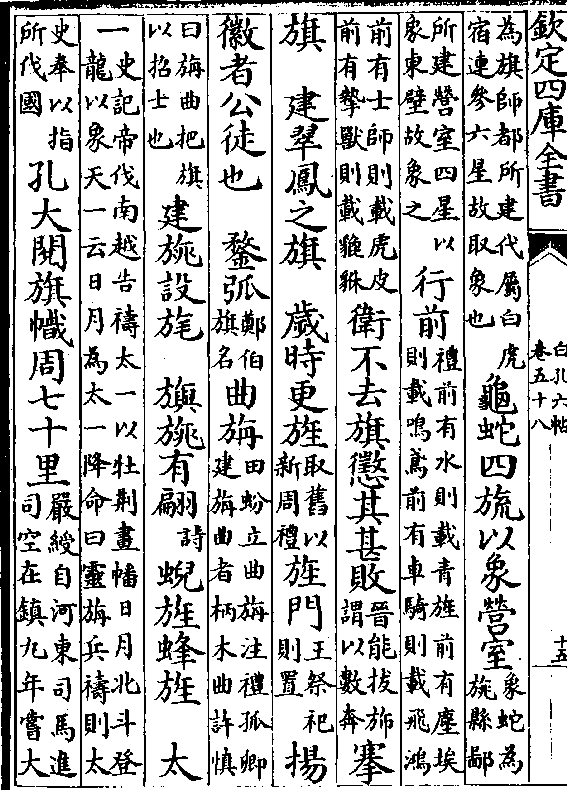 欽定四庫全書
白孔六帖
卷五十八
十五
為旗師都所建代屬白虎
宿連參六星故取象也
龜蛇四旒以象營室
象蛇為
旐縣鄙
所建營室四星以
象東壁故象之
行前
禮前有水則載青旌前有塵埃
則載鳴鳶前有車騎則載飛鴻
前有士師則載虎皮
前有摯獸則載貔貅
衛不去旗懲其甚敗
晉能拔斾
謂以數奔
搴
旗　建翠鳳之旗　歲時更旌
取舊以
新周禮
旌門
王祭祀
則置
揚
徽者公徒也　鍪弧
鄭伯
旗名
曲旃
田蚡立曲旃注禮孤卿
建旃曲者柄木曲許慎
曰旃曲把旗
以招士也
建旐設旄　旟旐有翩
詩
蜺旌蜂旌　太
一
史記帝伐南越告禱太一以牡荆畫幡日月北斗登
龍以象天一云日月為太一降命曰靈旃兵禱則太
史奉以指
所伐國
孔大閱旗幟周七十里
嚴綬自河東司馬進
司空在鎮九年嘗大